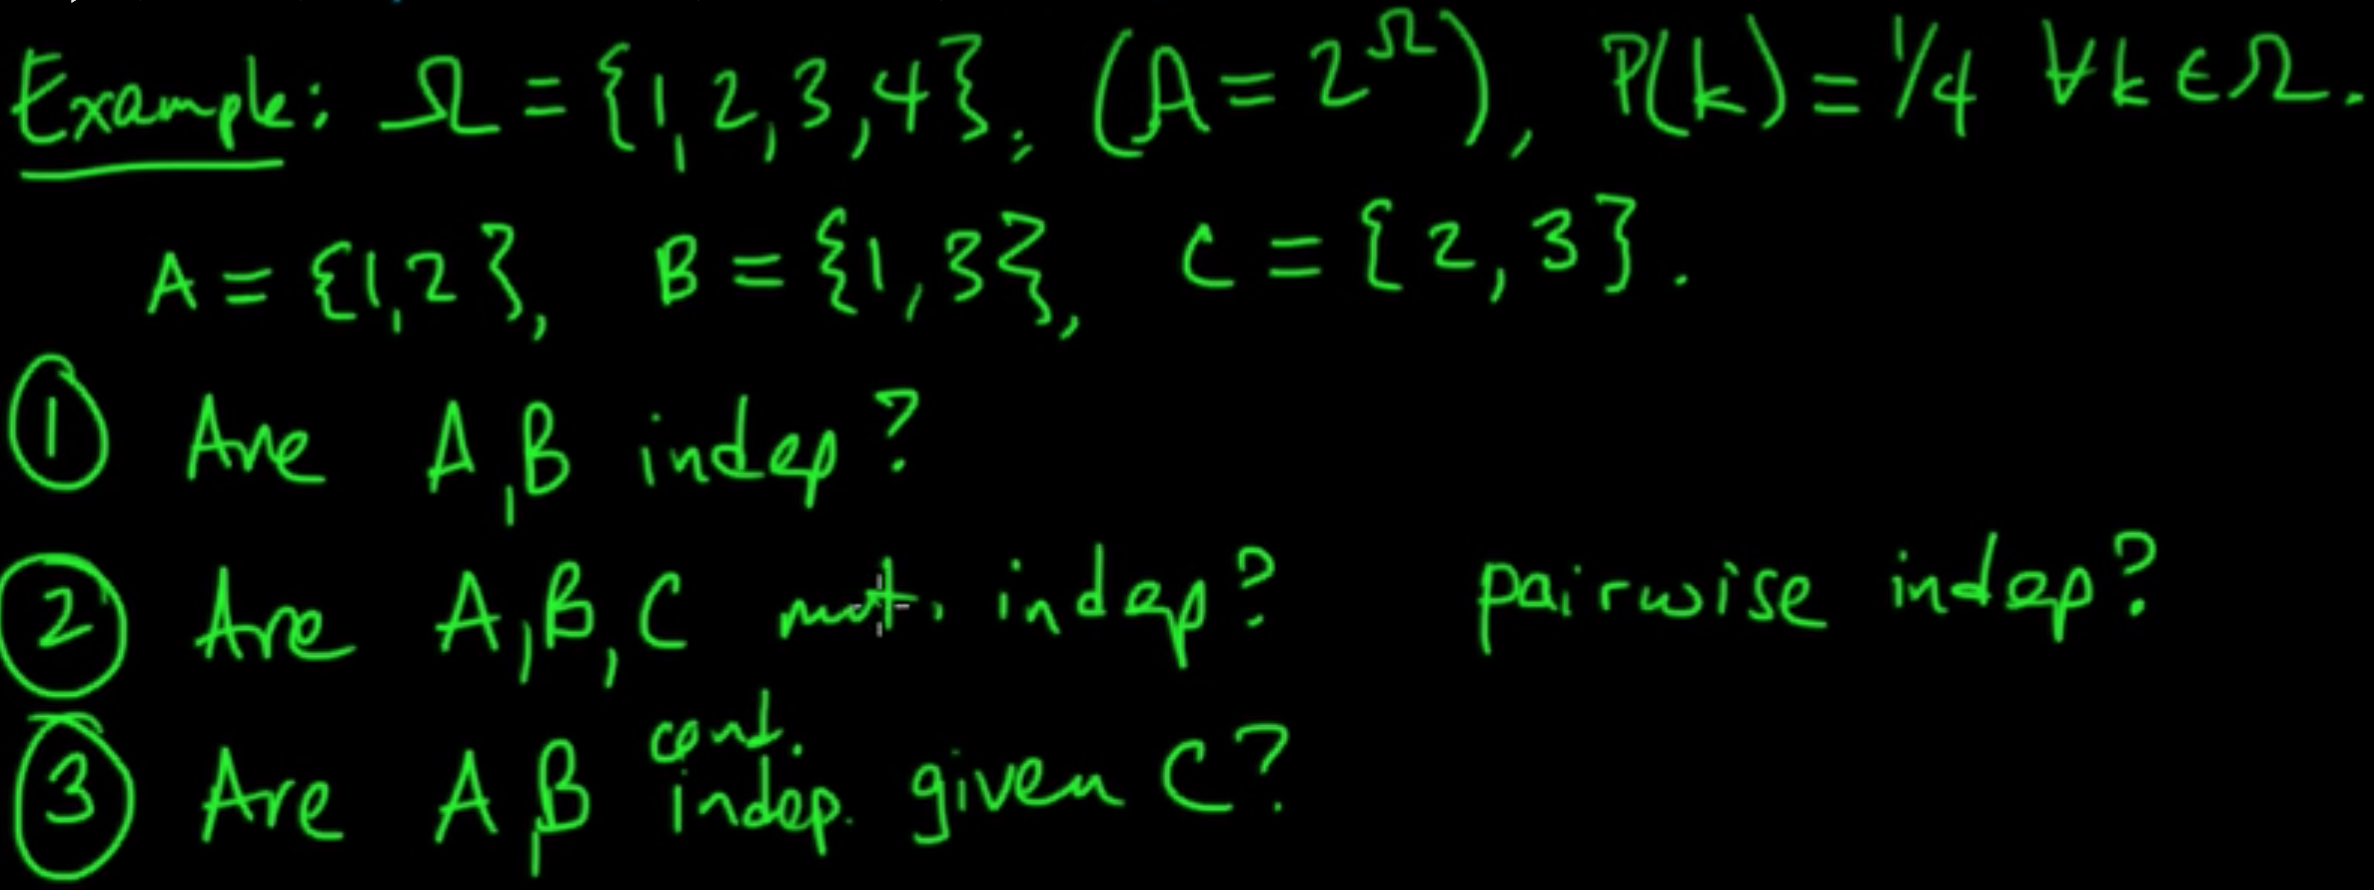 Example: Ω = {1, 2, 3, 4}, (A = 2^Ω), P(k) = 1/4 ∀k ∈ Ω.
A = {1,2}, B = {1,3}, C = {2,3}.
① Are A,B indep?
② Are A,B,C mut. indep? pairwise indep?
③ Are A,B cond. indep. given C?